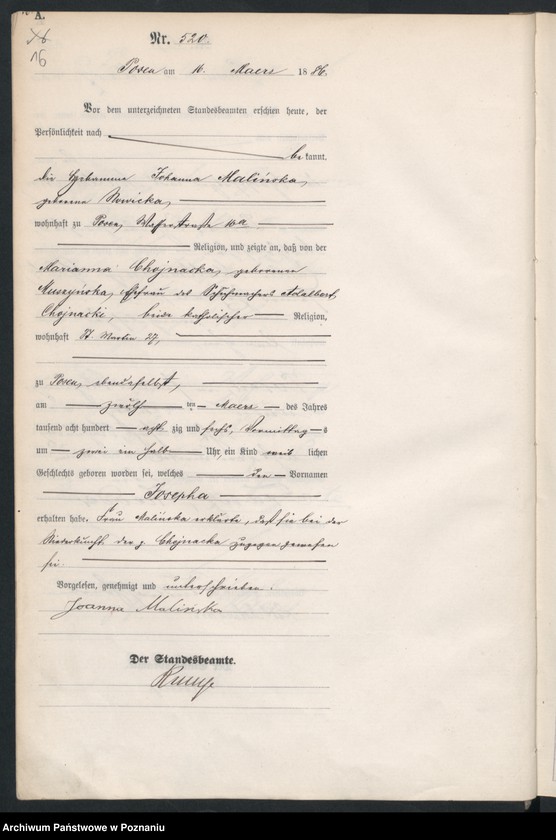 A.
16
Nr. 520
Posen am 16. Maerz 1886.
Vor dem unterzeichneten Standesbeamten erschien heute, der
Persönlichkeit nach
be kannt,
die Hebamme Johanna Malińska,
geborene Nowicka,
wohnhaft zu Posen, Wasserstraße
Religion, und zeigte an, daß von der
Marianna Chojnacka, geborenen
Muszyńska, Ehefrau des Schuhmachers Adalbert
Chojnacki, beide katholischer Religion,
wohnhaft St. Martin 27,
zu Posen, ebendaselbst,
am zwölf ten Maerz des Jahres
tausend acht hundert acht zig und sechs, Vormittag s
um zwei ein halb Uhr, ein Kind weib lichen
Geschlechts geboren worden sei, welches den Vornamen
Josepha
erhalten habe. Frau Malińska erklärte, daß sie bei der
Niederkunft der p. Chojnacka zugegen gewesen
sei.
Vorgelesen, genehmigt und unterschrieben.
Joanna Malińska
Der Standesbeamte.
Archiwum Państwowe w Poznaniu